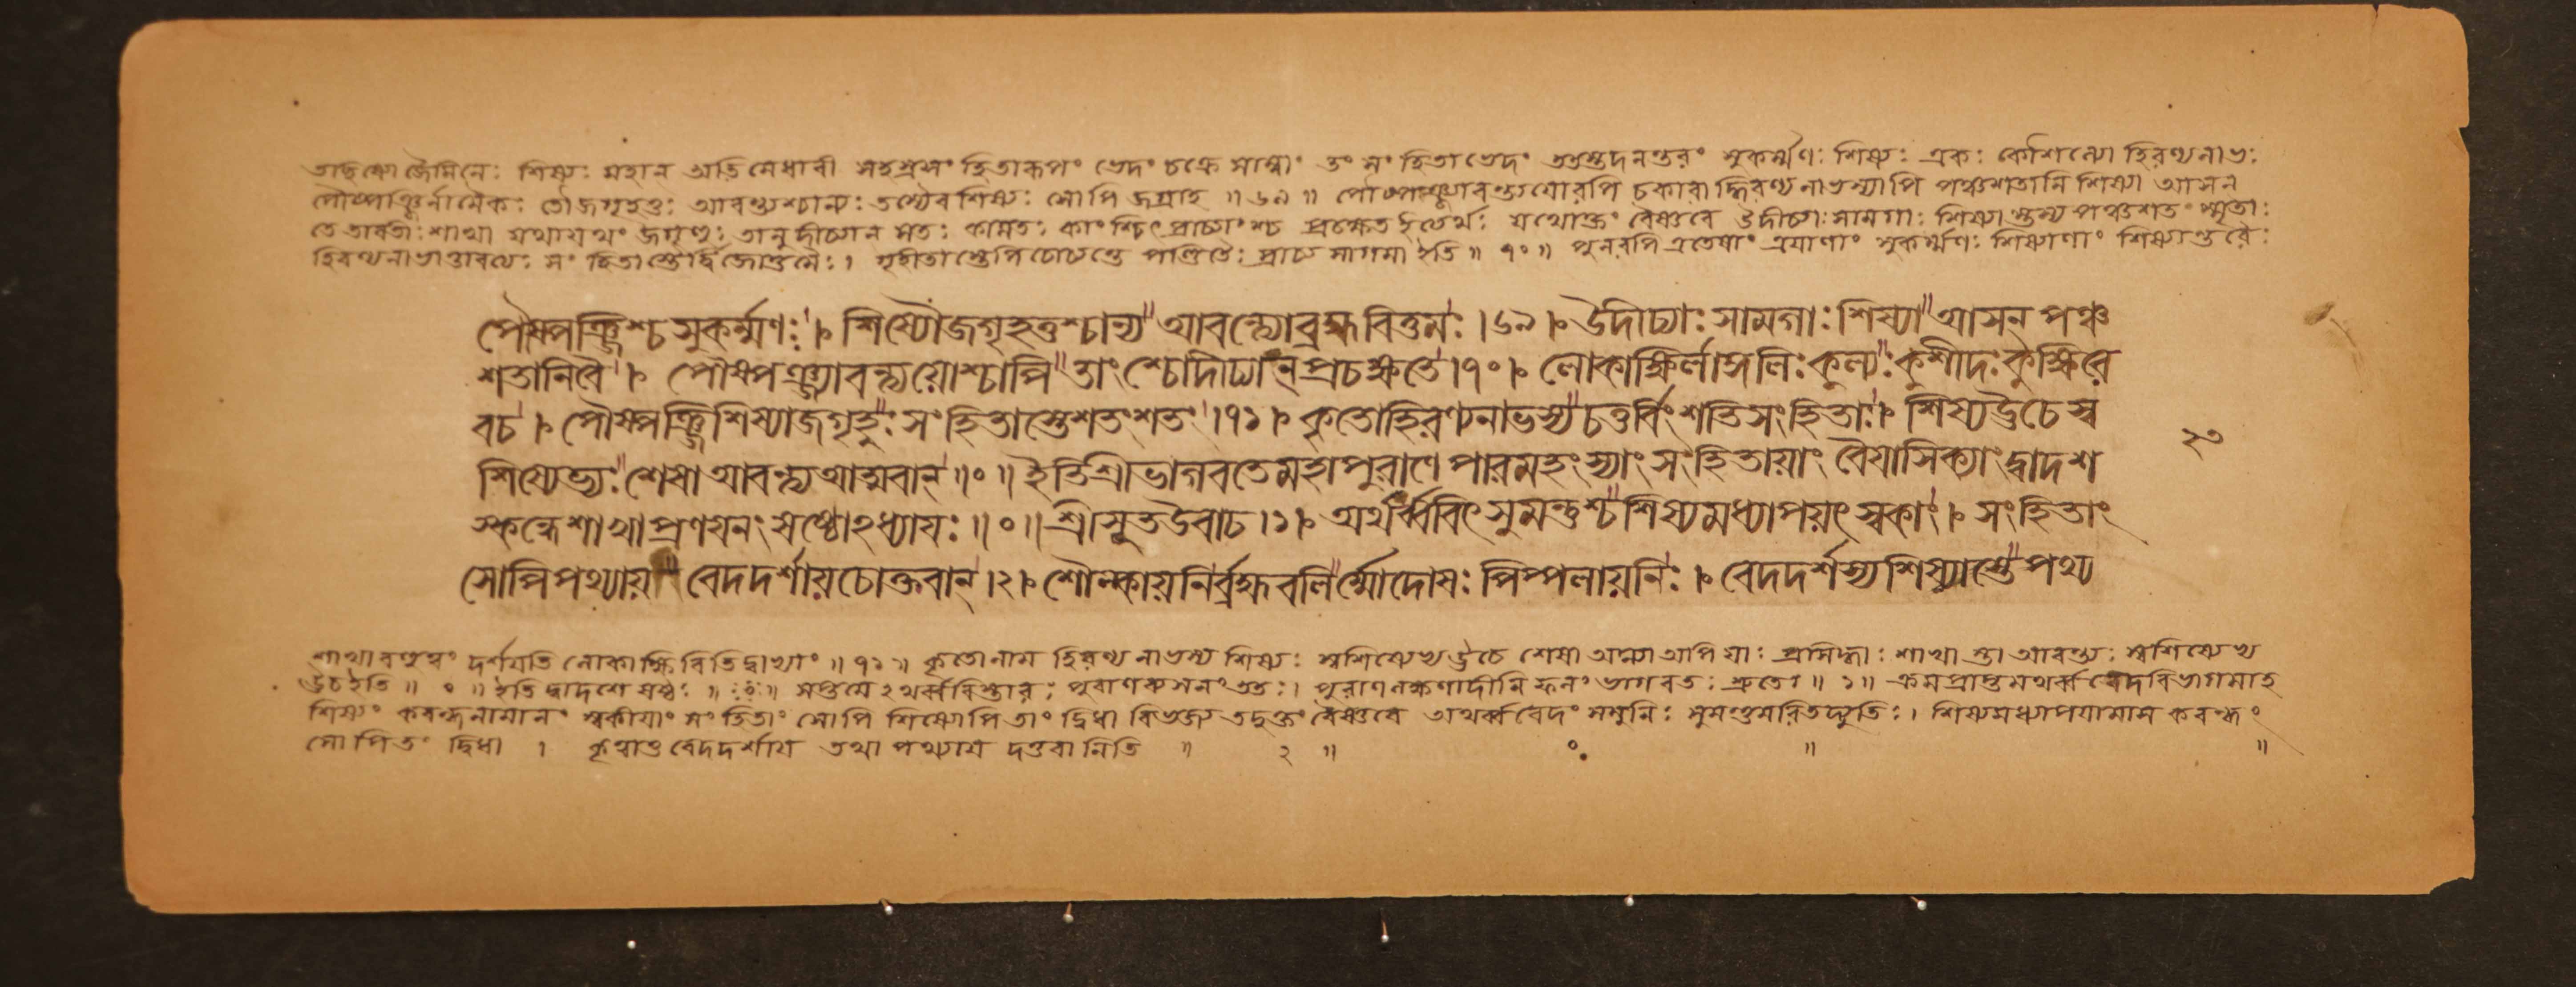 তাছিষ্যো জৈমিনেঃ শিষ্যঃ মহান অতি মেধাবী সহস্রসংহিতারূপং ভেদং চক্রে সাম্নাং তং সংহিতাভেদং ততস্তদনন্তরং সুকর্ম্মণঃ শিষ্যঃ একঃ কৌশিল্যো হিরণ্যনাভঃ
পৌষ্পঞ্জির্নামৈকঃ তৌ জগৃহতুঃ আবন্ত্যশ্চান্যঃ তস্যৈব শিষ্যঃ সোপি জগ্রাহ ॥ ৬৯ ॥ পৌষ্পঞ্জ্যাবন্ত্যয়োরপি চকারাদ্ধিরণ্যনাভস্যাপি পঞ্চশতানি শিষ্যা আসন
তে তাবতীঃ শাখা যথাযথং জগৃহুঃ তানুদীচ্যান সতঃ কালতঃ কাংশ্চিৎ প্রাচ্যাংশ্চ প্রচক্ষেত ইত্যর্থঃ যথোক্তং বৈষ্ণবে উদীচ্যাঃ সামগাঃ শিষ্যাস্তস্য পঞ্চশতং স্মৃতাঃ
হিরণ্যনাভাত্তাবত্যঃ সংহিতাস্তৈর্দ্বিজোত্তমৈঃ । গৃহীতাস্তেপি চোচ্যন্তে পণ্ডিতৈঃ প্রাচ্য সামগা ইতি ॥ ৭০ ॥ পুনরপি এতেষাং ত্রয়াণাং সুকর্ম্মণঃ শিষ্যাণাং শিষ্যান্তরৈঃ
পৌষ্পঞ্জিশ্চ সুকর্ম্মণঃ । শিষ্যৌ জগৃহতুশ্চান্য আবন্ত্যো ব্রহ্মবিত্তমঃ । ৬৯ । উদীচ্যাঃ সামগাঃ শিষ্যা আসন পঞ্চ
শতানি বৈ । পৌষ্পঞ্জ্যাবন্ত্যয়োশ্চাপি তাংশ্চোদীচ্যান্ প্রচক্ষতে । ৭০ । লোকাক্ষির্লাঙ্গলিঃ কুল্যঃ কুশীদঃ কুক্ষিরে
বচ । পৌষ্পঞ্জিশিষ্যা জগৃহুঃ সংহিতাস্তে শতং শতং । ৭১ । কৃতো হিরণ্যনাভস্য চতুর্বিংশতি সংহিতাঃ । শিষ্য উচে স্ব
শিষ্যেভ্যঃ শেষা আবন্ত্য আত্মবান্ ॥ ০ ॥ ইতি শ্রীভাগবতে মহাপুরাণে পারমহংস্যাং সংহিতায়াং বৈয়াসিক্যাং দ্বাদশ
স্কন্ধে শাখাপ্রণয়নং ষষ্ঠোঽধ্যায়ঃ ॥ ০ ॥ শ্রীসূত উবাচ । ১ । অথর্ব্ববিৎ সুমন্তুশ্চ শিষ্যমধ্যাপয়ৎ স্বকাং । সংহিতাং
সোপি পথ্যায় বেদদর্শায় চোক্তবান্ । ২ । শৌল্কায়নির্ব্রহ্মবলির্ম্মোদোষঃ পিপ্পলায়নিঃ । বেদদর্শস্য শিষ্যাস্তে পথ্য
২৩
শাখাবহুত্বং দর্শয়তি লোকাক্ষিরিতি দ্বাভ্যাং ॥ ৭১ ॥ কৃতো নাম হিরণ্যনাভস্য শিষ্যঃ স্বশিষ্যেভ্য উচে শেষা অন্যা অপি যাঃ প্রসিদ্ধাঃ শাখাস্তা আবন্ত্যঃ স্বশিষ্যেভ্য
উচ ইতি ॥ ০ ॥ ইতি দ্বাদশে ষষ্ঠঃ ॥ ০ ॥ সপ্তমেঽথর্ব্ববিস্তারঃ পুরাণকলনং ততঃ । পুরাণলক্ষণাদীনি ফলং ভাগবত শ্রুতেঃ ॥ ১ ॥ ক্রমপ্রাপ্তমথর্ব্ববেদবিভাগমাহ
শিষ্যং কবন্ধনামানং স্বকীয়াং সংহিতাং সোপি শিষ্যোপি তাং দ্বিধা বিভজ্য তদুক্তং বৈষ্ণবে অথর্ব্ববেদং সমুনিঃ সুমন্তুরমিতদ্যুতিঃ । শিষ্যমধ্যাপয়ামাস কবন্ধং
সোপি তং দ্বিধা । কৃত্বা তু বেদদর্শায় তথা পথ্যায় দত্তবানিতি ॥ ২ ॥ ০ ॥ ॥